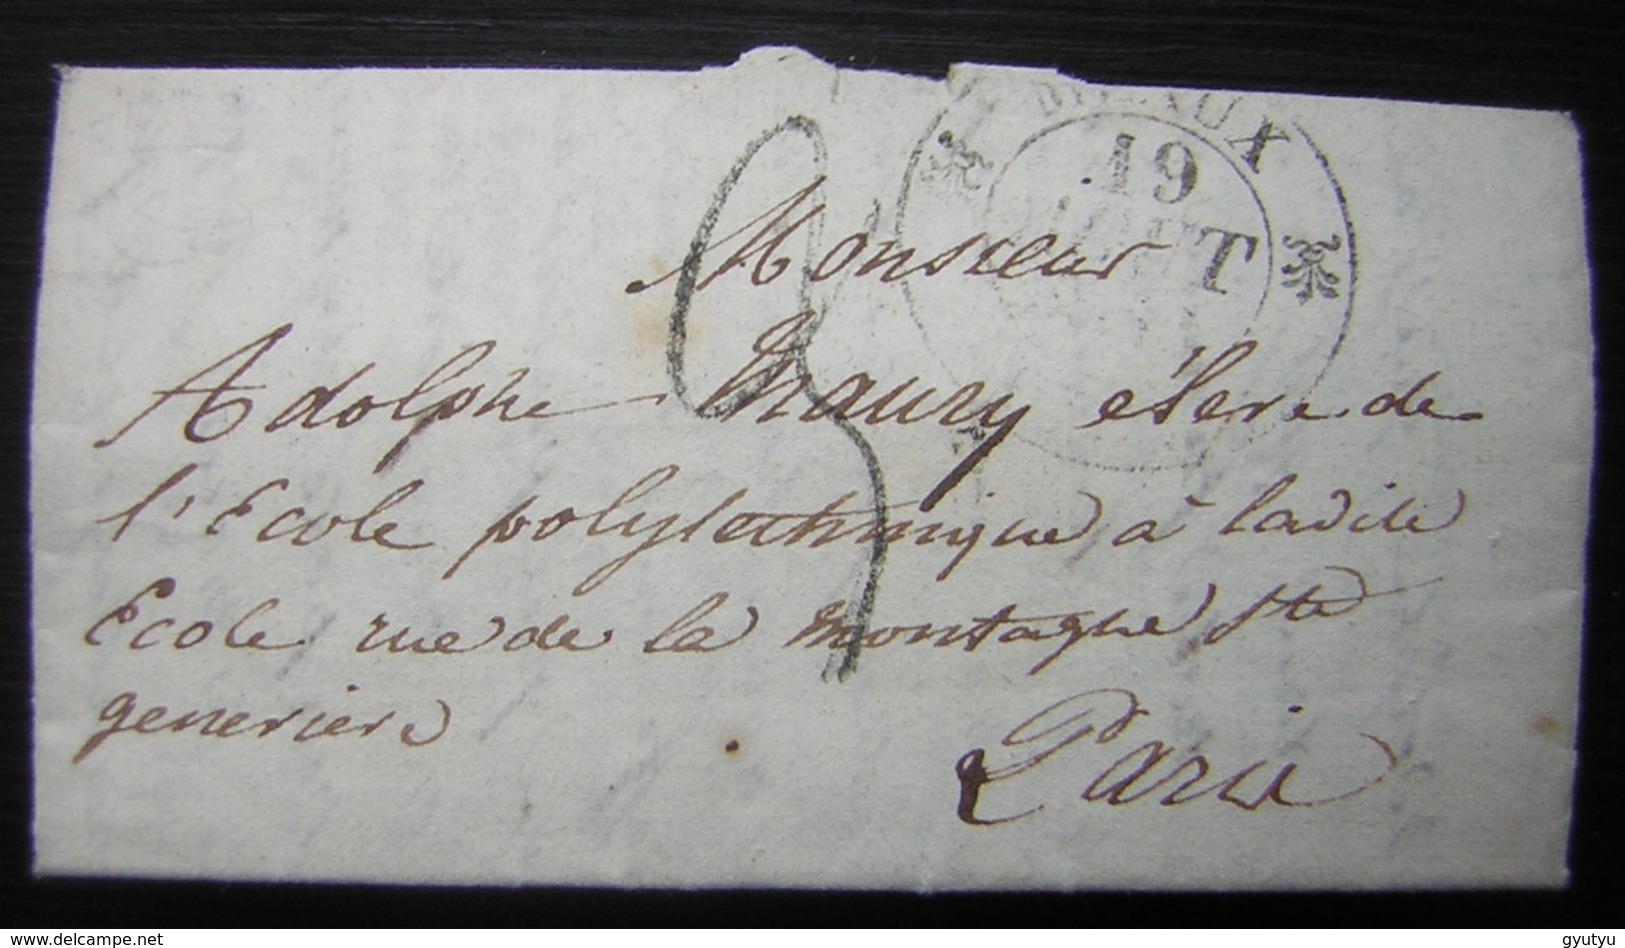 19
AOUT
Monsieur
Adolphe Maury élève de
l'Ecole polytechnique à ladite
Ecole rue de la montagne Ste
genevieve
Paris
www.delcampe.net
gyutyu